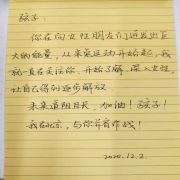 孩子：
你在向女性朋友们迸发出巨
大的能量，从米兔运动开始起，我
就一直在关注你、开始了解、深入女性，
让自己得到逐步解放。
未来道阻且长，加油！孩子！
我在北京，与你并肩作战！
2020.12.2.